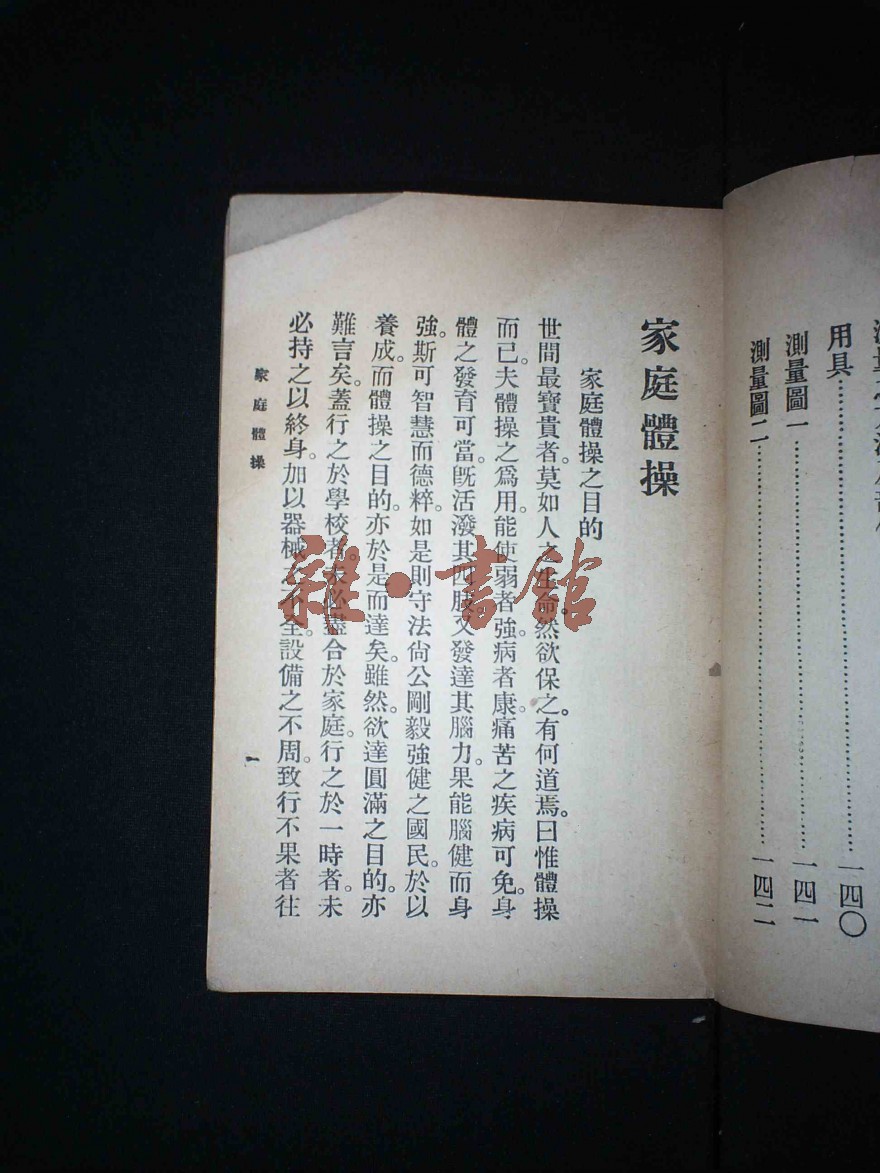 用具⋯⋯⋯⋯⋯⋯⋯⋯一四〇
測量圖一⋯⋯⋯⋯⋯⋯⋯⋯一四一
測量圖二⋯⋯⋯⋯⋯⋯⋯⋯一四二
家庭體操
家庭體操之目的
世間最寶貴者。莫如人之生命。然欲保之。有何道焉。曰惟體操
而已。夫體操之爲用。能使弱者強。病者康。痛苦之疾病可免。身
體之發育可當。旣活潑其四肢。又發達其腦力。果能腦健而身
強。斯可智慧而德粹。如是則守法尙公剛毅強健之國民。於以
養成。而體操之目的。亦於是而達矣。雖然。欲達圓滿之目的。亦
難言矣。蓋行之於學校者。未必盡合於家庭。行之於一時者。未
必持之以終身。加以器械之不全。設備之不周。致行不果者往
家庭體操
一
雜·書館